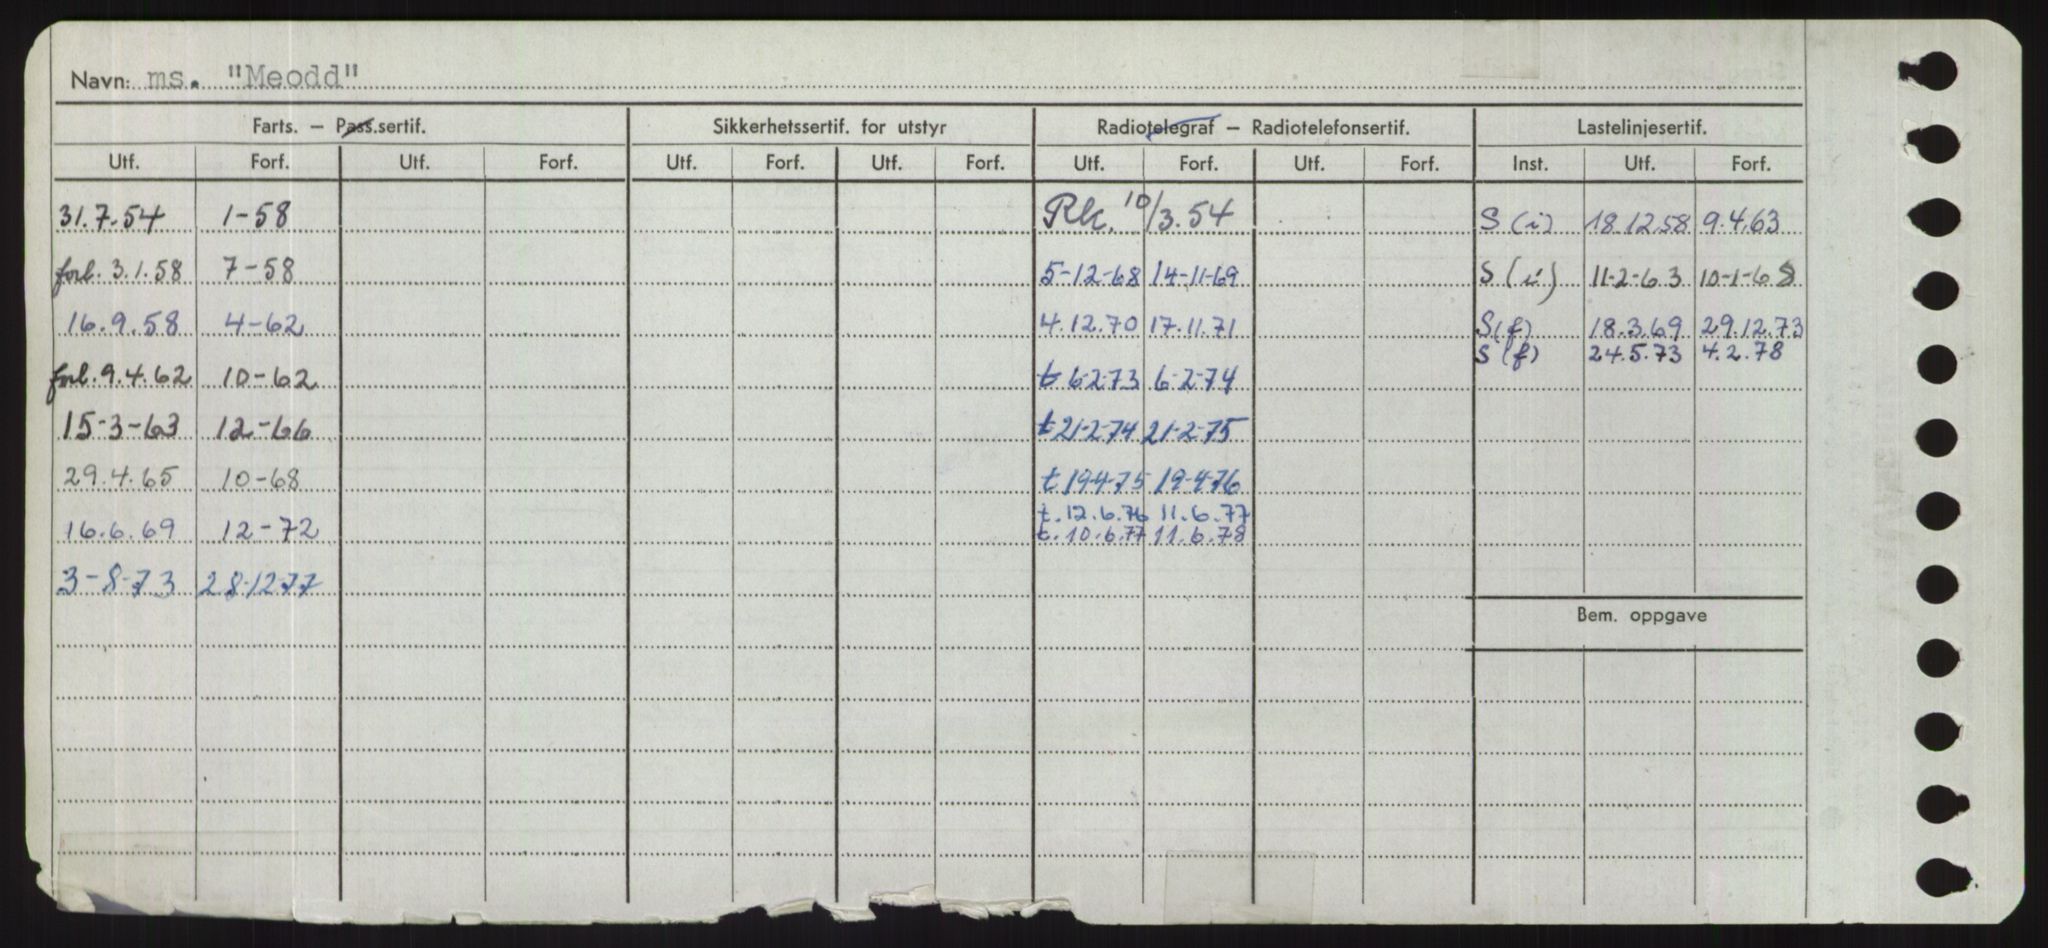 Navn: ms. "Meodd"
Farts. – Pass.sertif. Sikkerhetssertif. for utstyr Radiotelegraf – Radiotelefonsertif. Lastelinjesertif.
Utf. Forf. Utf. Forf. Utf. Forf. Utf. Forf. Utf. Forf. Utf. Forf. Inst. Utf. Forf.
31.7.54 1-58 Rk. 10/3.54 S (i) 18.12.58 9.4.63
forl. 3.1.58 7-58 5-12-68 14-11-69 S (i) 11-2-63 10-1-68
16.9.58 4-62 4.12.70 17.11.71 S (f) 18.3.69 29.12.73
S (f) 24.5.73 4.2.78
forl. 9.4.62 10-62 t 6-2-73 6-2-74
15-3-63 12-66 t 21-2-74 21-2-75
29.4.65 10-68 t 19-4-75 19-4-76
16.6.69 12-72 t. 12.6.76 11.6.77
t. 10.6.77 11.6.78
3-8-73 28-12-77
Bem. oppgave